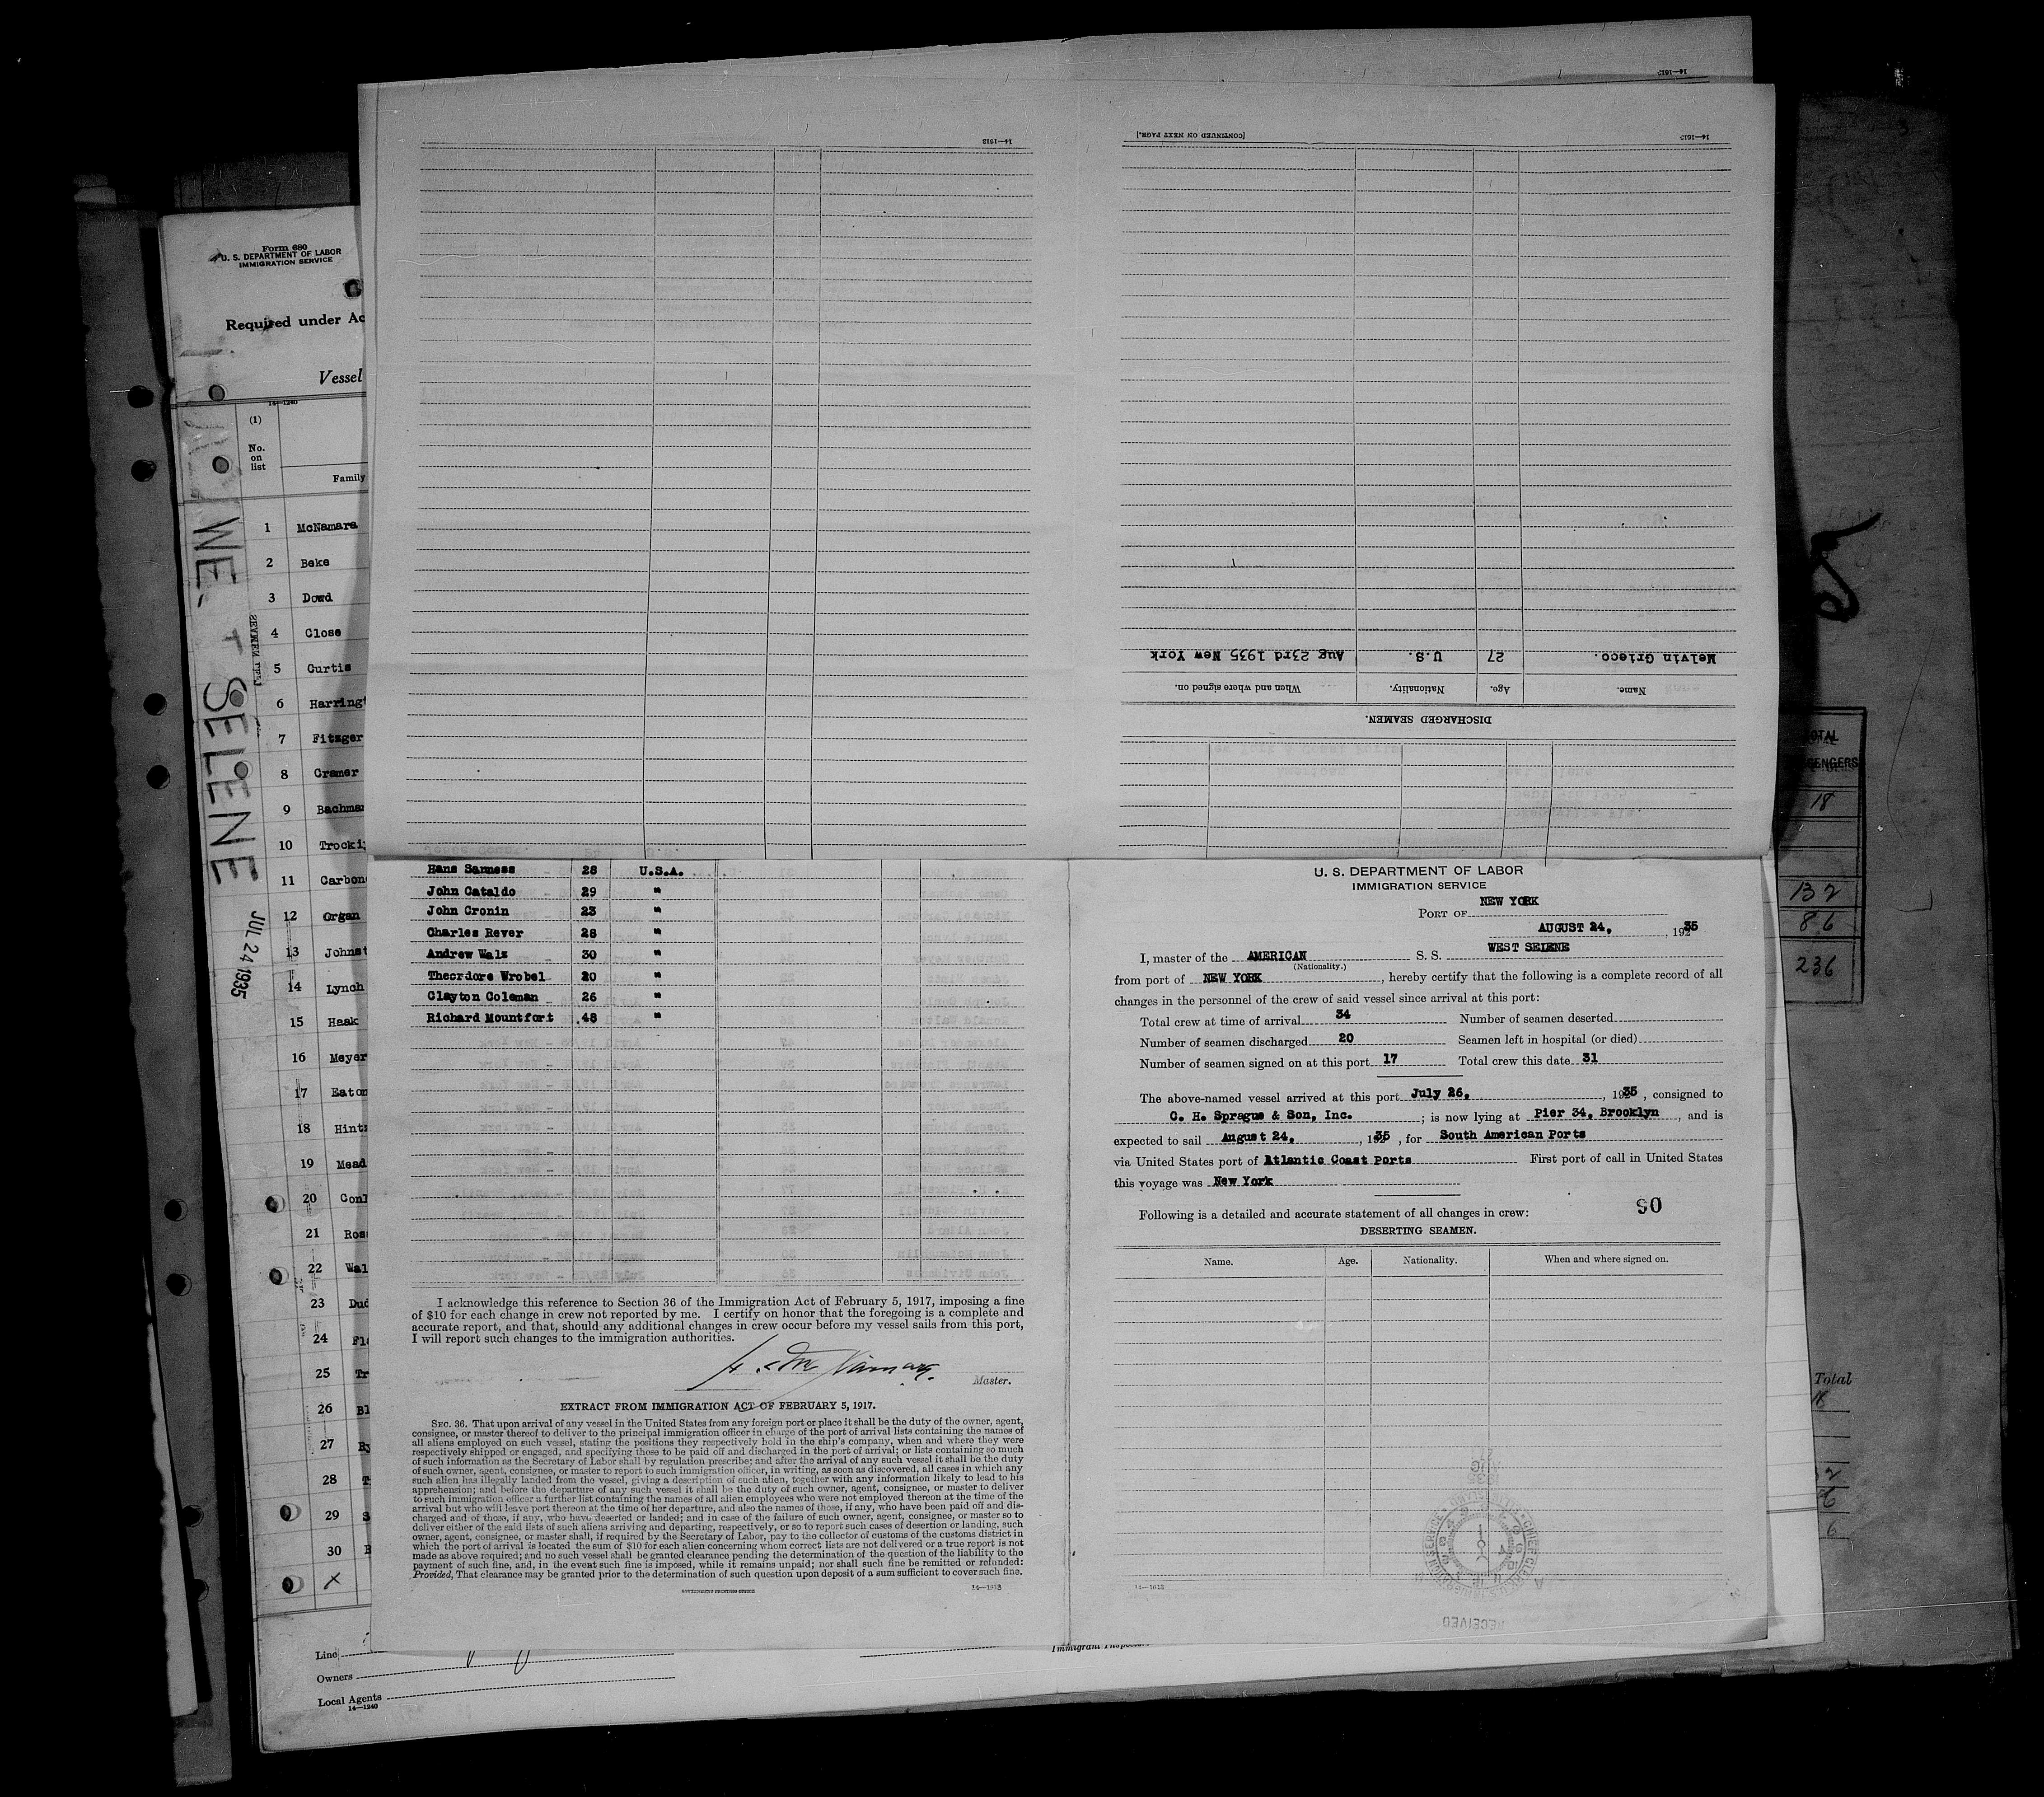 14—1613
14—1613
[CONTINUED ON NEXT PAGE.]
14—1613
Melvin Grieco. 27 U.S. Aug 23rd 1935 New York
Name. Age. Nationality. When and where signed on.
DISCHARGED SEAMEN.
Form 680
U. S. DEPARTMENT OF LABOR
IMMIGRATION SERVICE
Required under Ac
Vessel
14—1240
(1)
No.
on
list
Family
1 McNamara
2 Beke
3 Dowd
4 Close
5 Curtis
6 Harringt
7 Fitzger
8 Cramer
9 Bachma
10 Trocki
11 Carbon
12 Organ
13 Johnst
14 Lynch
15 Haak
16 Meyer
17 Eaton
18 Hint
19 Mead
20 Conl
21 Ros
22 Wal
23 Dud
24 Fl
25 Tr
26 Bl
27 Ry
28
29 S
30
WE. + SELENE
JUL 24 1935
Line
Owners
Local Agents
14—1240
Hans Sanness 28 U.S.A.
John Cataldo 29 "
John Cronin 23 "
Charles Rever 28 "
Andrew Walz 30 "
Theordore Wrobel 20 "
Clayton Coleman 26 "
Richard Mountfort 48 "
I acknowledge this reference to Section 36 of the Immigration Act of February 5, 1917, imposing a fine
of $10 for each change in crew not reported by me. I certify on honor that the foregoing is a complete and
accurate report, and that, should any additional changes in crew occur before my vessel sails from this port,
I will report such changes to the immigration authorities.
Master.
EXTRACT FROM IMMIGRATION ACT OF FEBRUARY 5, 1917.
SEC. 36. That upon arrival of any vessel in the United States from any foreign port or place it shall be the duty of the owner, agent,
consignee, or master thereof to deliver to the principal immigration officer in charge of the port of arrival lists containing the names of
all aliens employed on such vessel, stating the positions they respectively hold in the ship's company, when and where they were
respectively shipped or engaged, and specifying those to be paid off and discharged in the port of arrival; or lists containing so much
of such information as the Secretary of Labor shall by regulation prescribe; and after the arrival of any such vessel it shall be the duty
of such owner, agent, consignee, or master to report to such immigration officer, in writing, as soon as discovered, all cases in which any
such alien has illegally landed from the vessel, giving a description of such alien, together with any information likely to lead to his
apprehension; and before the departure of any such vessel it shall be the duty of such owner, agent, consignee, or master to deliver
to such immigration officer a further list containing the names of all alien employees who were not employed thereon at the time of the
arrival but who will leave port thereon at the time of her departure, and also the names of those, if any, who have been paid off and dis-
charged and of those, if any, who have deserted or landed; and in case of the failure of such owner, agent, consignee, or master so to
deliver either of the said lists of such aliens arriving and departing, respectively, or so to report such cases of desertion or landing, such
owner, agent, consignee, or master shall, if required by the Secretary of Labor, pay to the collector of customs of the customs district in
which the port of arrival is located the sum of $10 for each alien concerning whom correct lists are not delivered or a true report is not
made as above required; and no such vessel shall be granted clearance pending the determination of the question of the liability to the
payment of such fine, and, in the event such fine is imposed, while it remains unpaid; nor shall such fine be remitted or refunded:
Provided, That clearance may be granted prior to the determination of such question upon deposit of a sum sufficient to cover such fine.
GOVERNMENT PRINTING OFFICE
14—1613
U. S. DEPARTMENT OF LABOR
IMMIGRATION SERVICE
PORT OF NEW YORK
AUGUST 24, 1935
I, master of the AMERICAN S. S. WEST SELENE
(Nationality.)
from port of NEW YORK, hereby certify that the following is a complete record of all
changes in the personnel of the crew of said vessel since arrival at this port:
Total crew at time of arrival 34 Number of seamen deserted
Number of seamen discharged 20 Seamen left in hospital (or died)
Number of seamen signed on at this port 17 Total crew this date 31
The above-named vessel arrived at this port July 26, 1935, consigned to
C. H. Sprague & Son, Inc.; is now lying at Pier 34, Brooklyn, and is
expected to sail August 24, 1935, for South American Ports
via United States port of Atlantic Coast Ports First port of call in United States
this voyage was New York
90
Following is a detailed and accurate statement of all changes in crew:
DESERTING SEAMEN.
Name. Age. Nationality. When and where signed on.
14—1613
RECEIVED
Immigrant Inspector
OTAL
SENGERS
18
132
86
236
Total